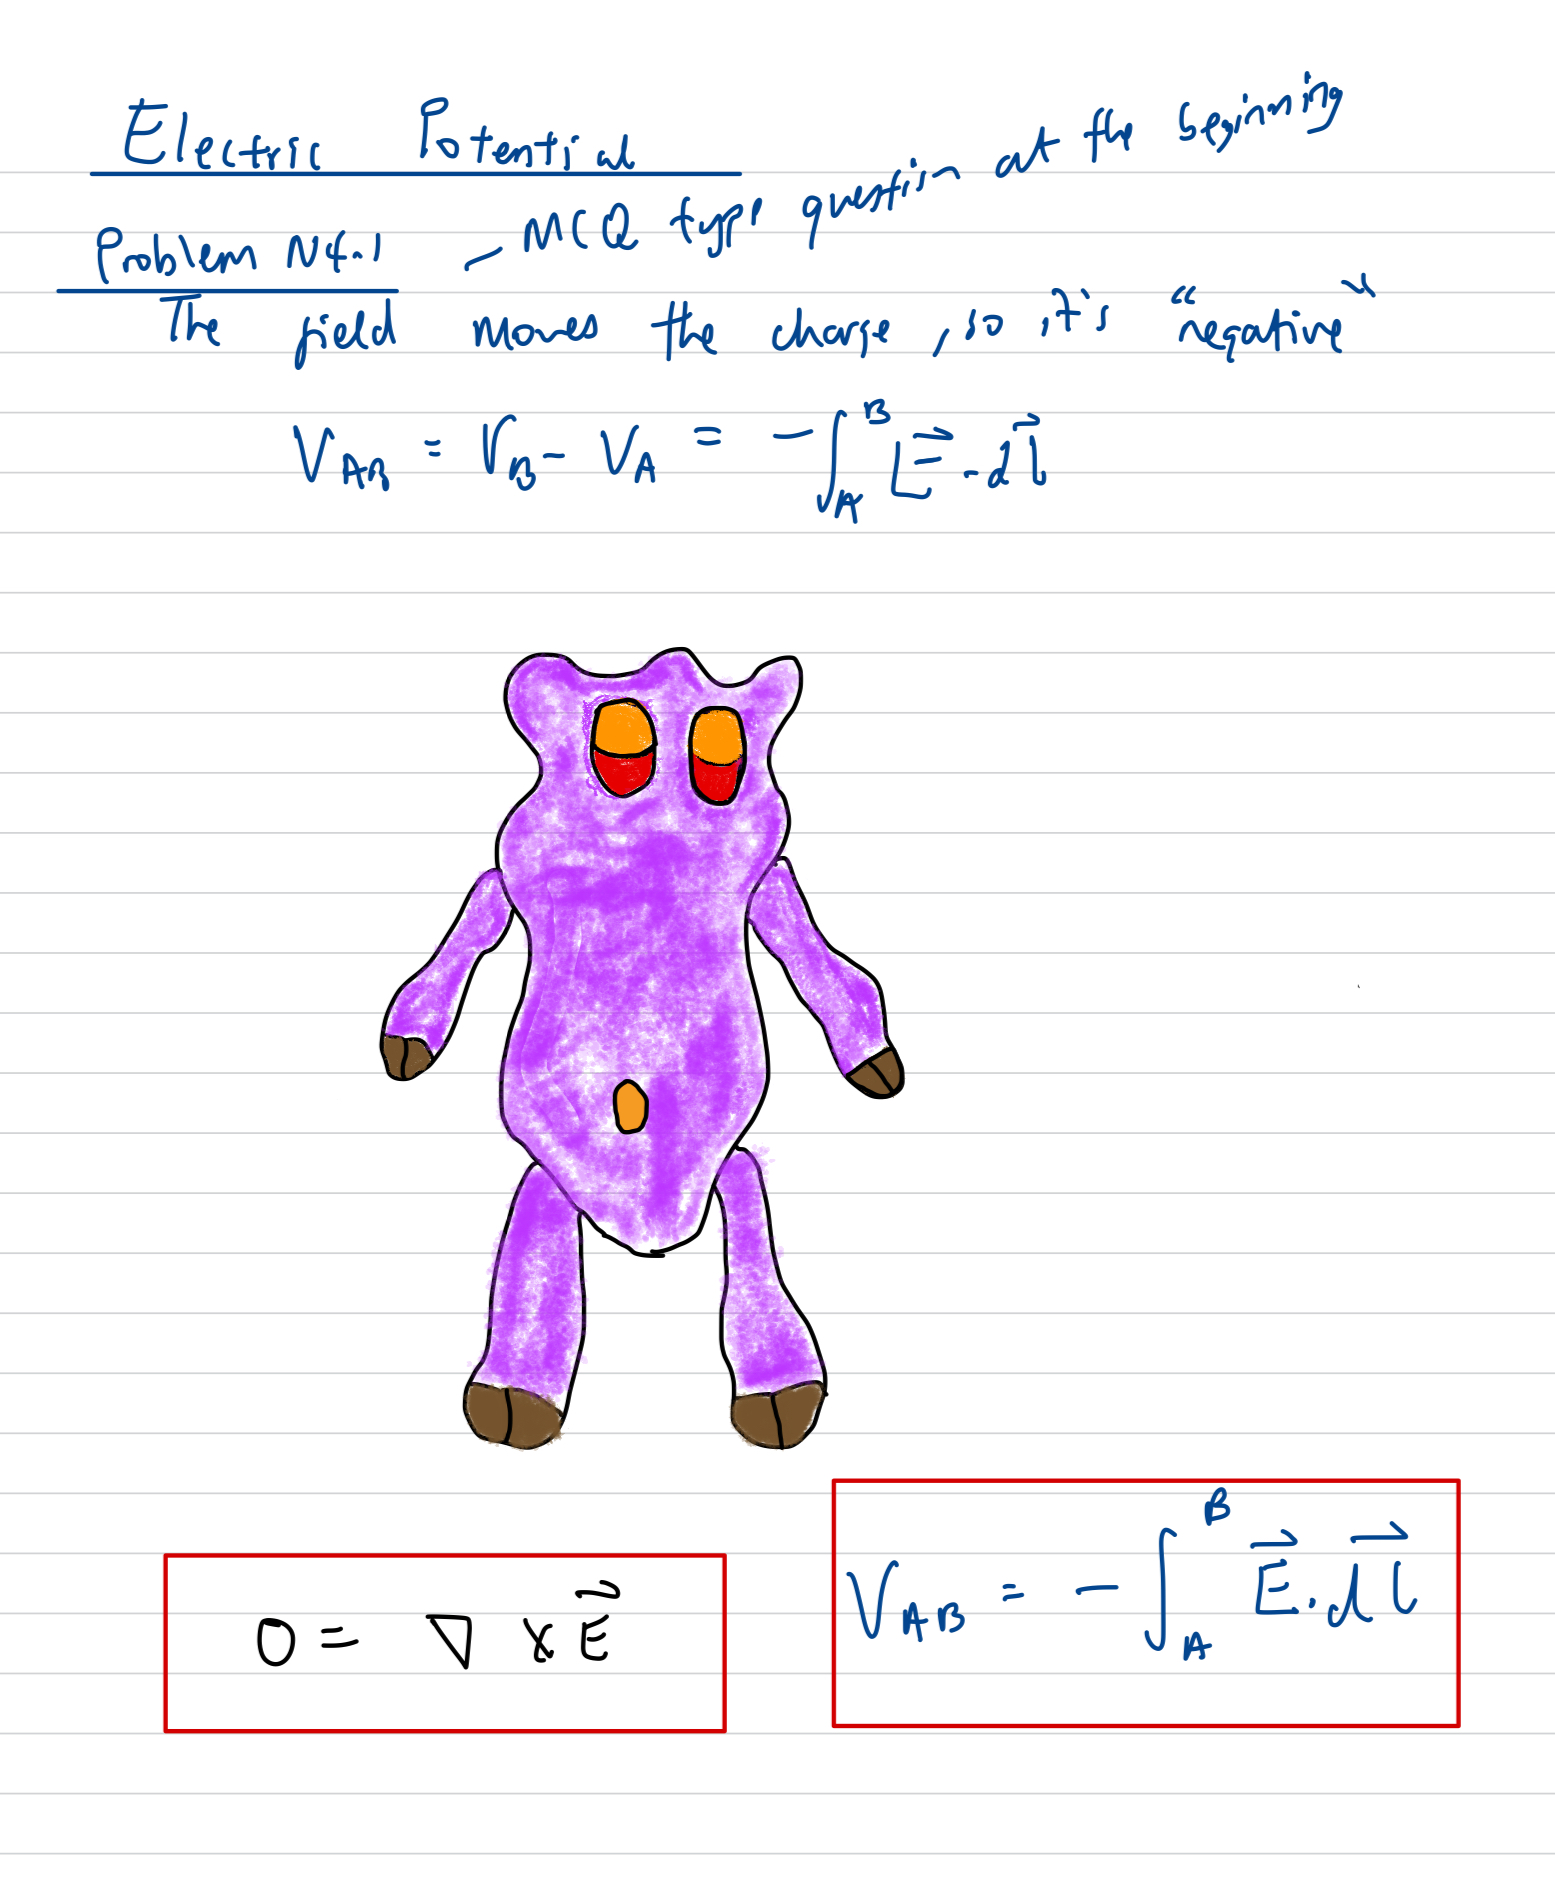 Electric Potential
Problem N4.1 - MCQ type question at the beginning
The field moves the charge, so it's "negative"
V_AB = V_B - V_A = -∫_A^B E⃗ . dl⃗
0 = ∇ × E⃗
V_AB = -∫_A^B E⃗ . dl⃗